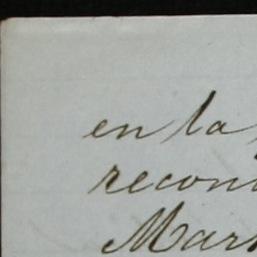 en la
recon
Mar